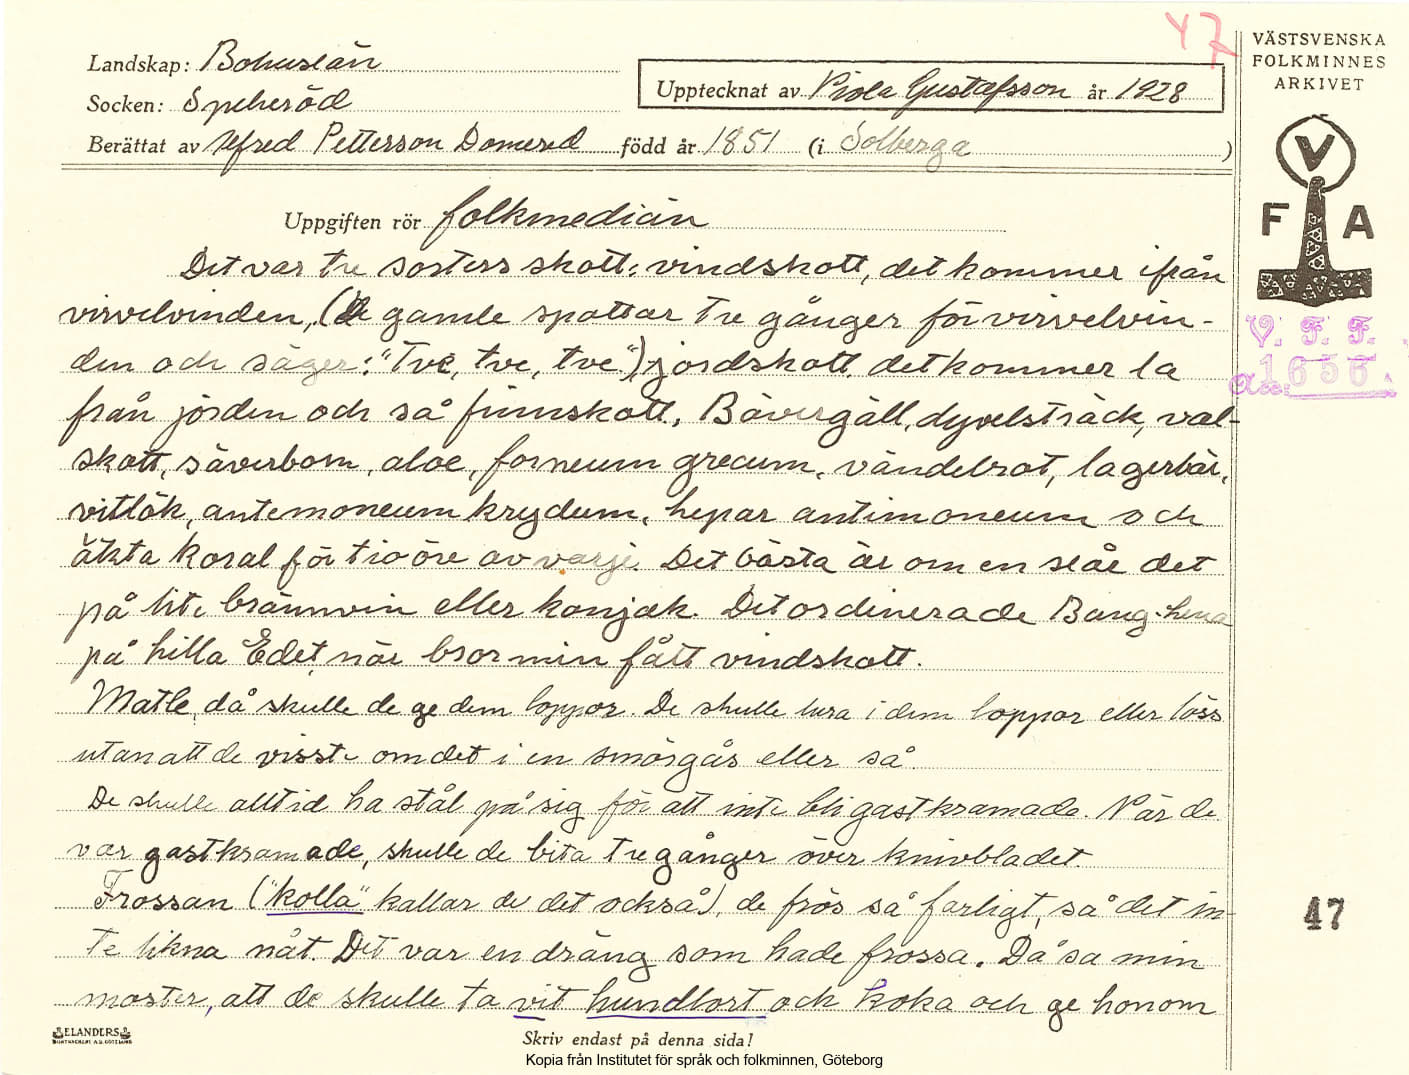 47
Landskap: Bohuslän
Socken: Spekeröd
Berättat av Alfred Pettersson Domered född år 1851 (i Solberga)
Upptecknat av Viola Gustafsson år 1928
VÄSTSVENSKA
FOLKMINNES
ARKIVET
V
F A
V. F. F.
Acc: 1656.
Uppgiften rör folkmedicin
Det var tre sorters skott: vindskott, det kommer ifrån
virvelvinden, (De gamle spottar tre gånger för virvelvin-
den och säger: "Tve, tve, tve"), jordskott, det kommer la
från jorden och så finnskott. Bävergäll, dyvelsträck, val-
skott, säverbom, aloe, forneum grecum, vändelrot, lagerbär,
vitlök, antemoneum krydum, hepar antimoneum och
äkta koral för tio öre av varje. Det bästa är om en slår det
på lite brännvin eller konjak. Det ordinerade Bang-hena
på Lilla Edet, när bror min fått vindskott.
Matle, då skulle de ge dem loppor. De skulle lura i dem loppor eller löss
utan att de visste om det i en smörgås eller så.
De skulle alltid ha stål på sig för att inte bli gastkramade. När de
var gastkramade, skulle de bita tre gånger över knivbladet.
Frossan ("kolla" kallar de det också), de frös så farligt, så det in-
te likna nåt. Det var en dräng som hade frossa. Då sa min
moster, att de skulle ta vit hundlort och koka och ge honom
47
ELANDERS
Skriv endast på denna sida!
Kopia från Institutet för språk och folkminnen, Göteborg